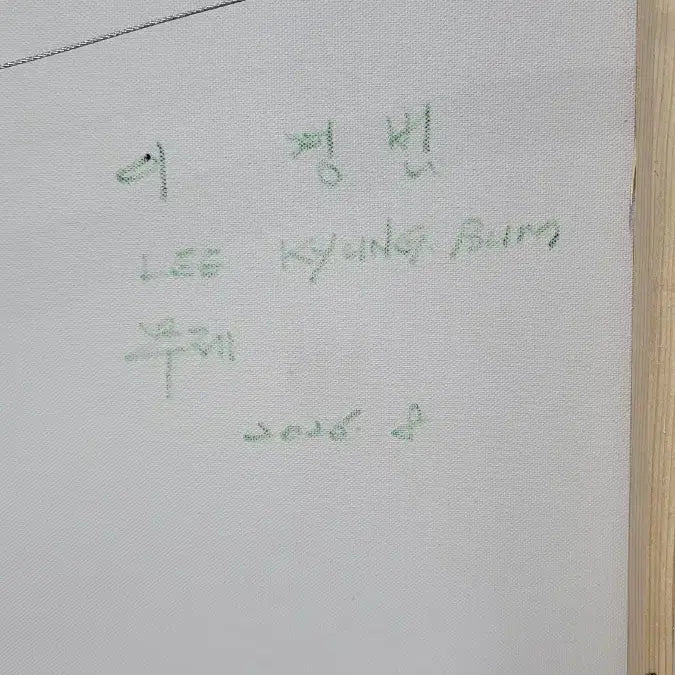 이 경범
LEE KYUNG BUM
무제
2026. 8